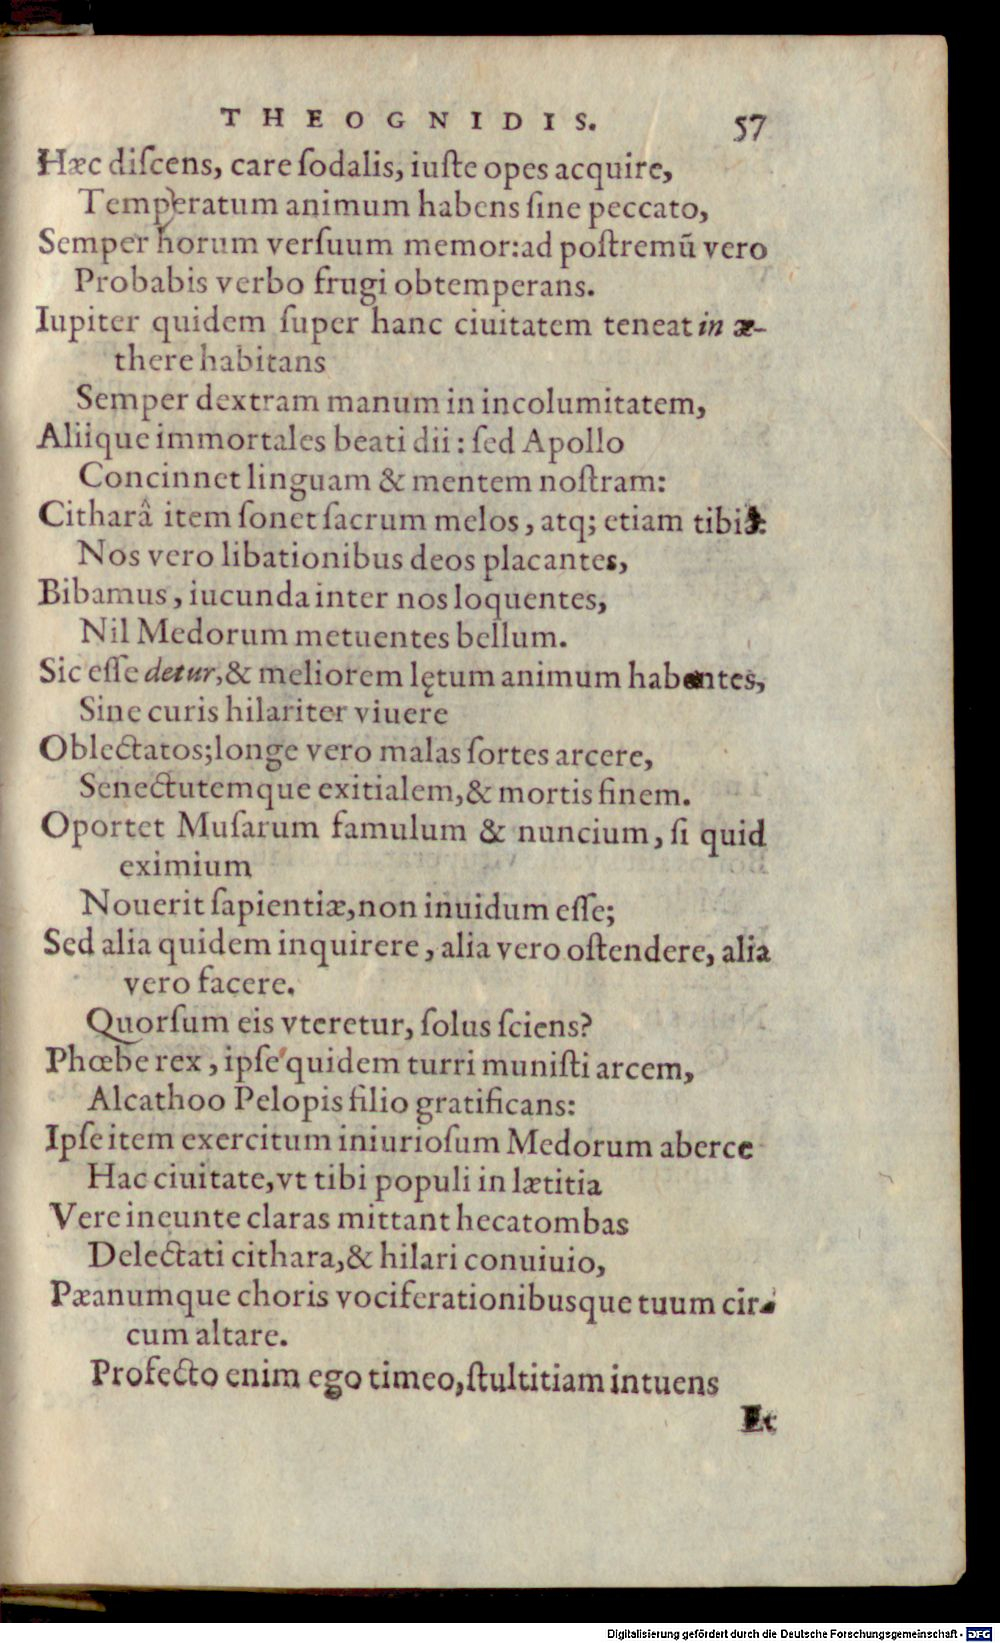 THEOGNIDIS. 57
Hæc diſcens, care ſodalis, iuſte opes acquire,
Temperatum animum habens ſine peccato,
Semper horum verſuum memor: ad poſtremū vero
Probabis verbo frugi obtemperans.
Iupiter quidem ſuper hanc ciuitatem teneat in æ-
there habitans
Semper dextram manum in incolumitatem,
Aliique immortales beati dii: ſed Apollo
Concinnet linguam & mentem noſtram:
Citharâ item ſonet ſacrum melos, atq; etiam tibia:
Nos vero libationibus deos placantes,
Bibamus, iucunda inter nos loquentes,
Nil Medorum metuentes bellum.
Sic eſſe detur, & meliorem lętum animum habentes,
Sine curis hilariter viuere
Oblectatos; longe vero malas ſortes arcere,
Senectutemque exitialem, & mortis finem.
Oportet Muſarum famulum & nuncium, ſi quid
eximium
Nouerit ſapientiæ, non inuidum eſſe;
Sed alia quidem inquirere, alia vero oſtendere, alia
vero facere.
Quorſum eis vteretur, ſolus ſciens?
Phœbe rex, ipſe quidem turri muniſti arcem,
Alcathoo Pelopis filio gratificans:
Ipſe item exercitum iniurioſum Medorum aberce
Hac ciuitate, vt tibi populi in lætitia
Vere ineunte claras mittant hecatombas
Delectati cithara, & hilari conuiuio,
Pæanumque choris vociferationibusque tuum cir-
cum altare.
Profecto enim ego timeo, ſtultitiam intuens
Et
Digitalisierung gefördert durch die Deutsche Forschungsgemeinschaft - DFG